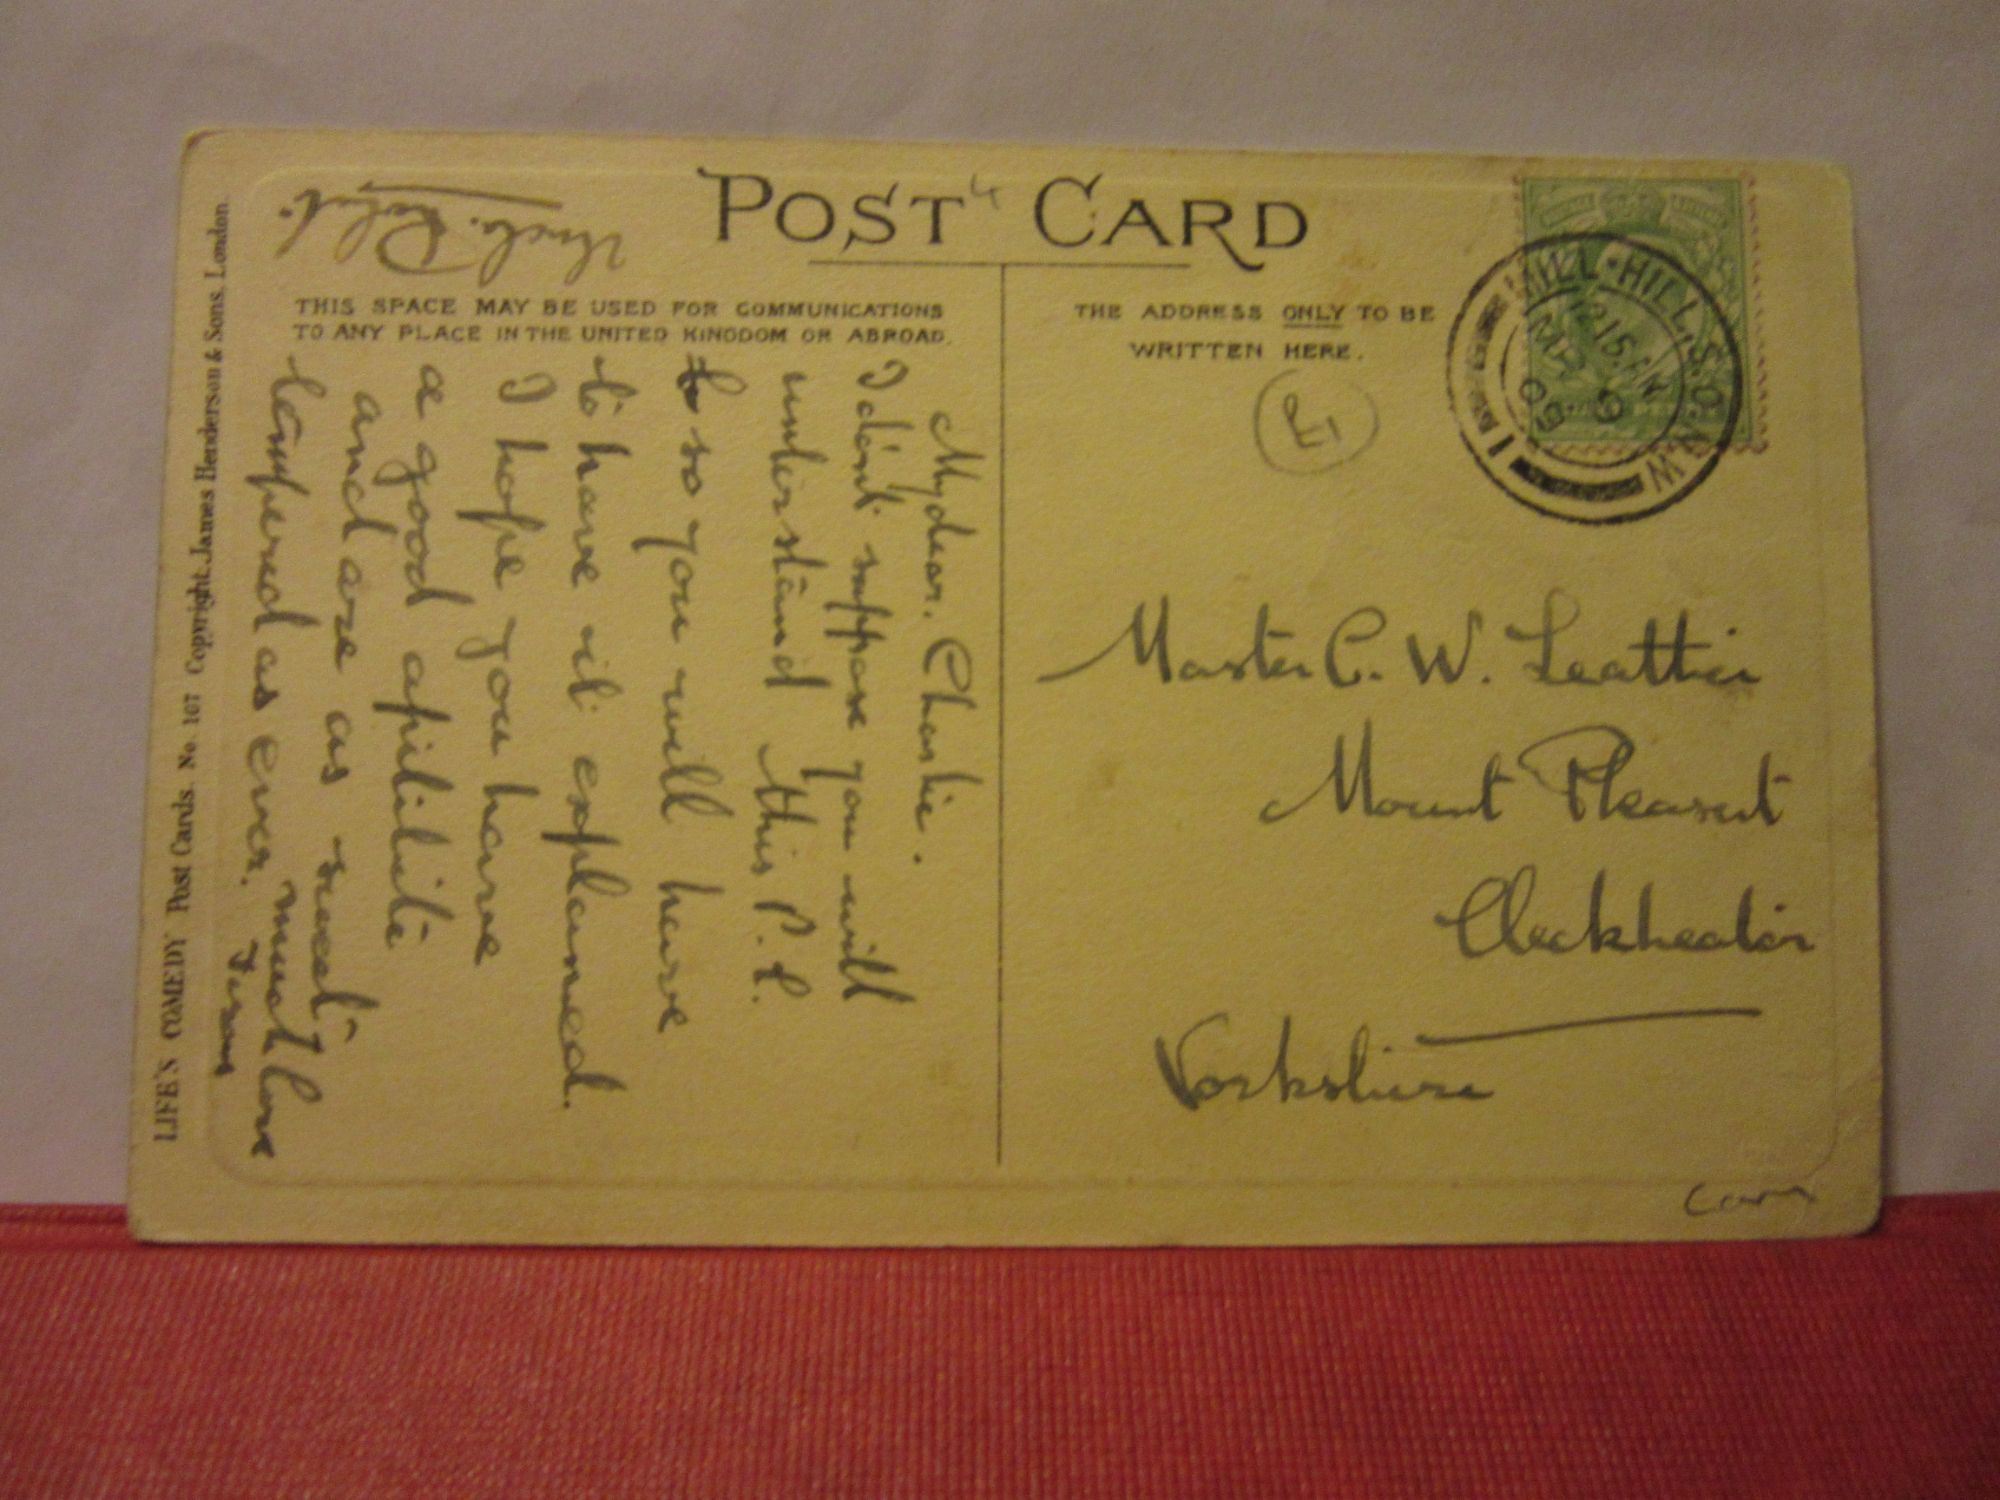 POST CARD
THIS SPACE MAY BE USED FOR COMMUNICATIONS
TO ANY PLACE IN THE UNITED KINGDOM OR ABROAD.
THE ADDRESS ONLY TO BE
WRITTEN HERE.
MILL·HILL, S.O. N.W
12 15 PM
MR 9
09
1
My dear. Charlie.
I don't suppose you will
understand this P.C.
so you will have
to have it explained.
I hope you have
a good apitite
and are as sweet
tempered as ever. much love
from
Uncle. Robt.
Master C. W. Leatter
Mount Pleasant
Cleckheaton
Yorkshire
LIFE'S COMEDY Post Cards. No. 107 Copyright. James Henderson & Sons, London.